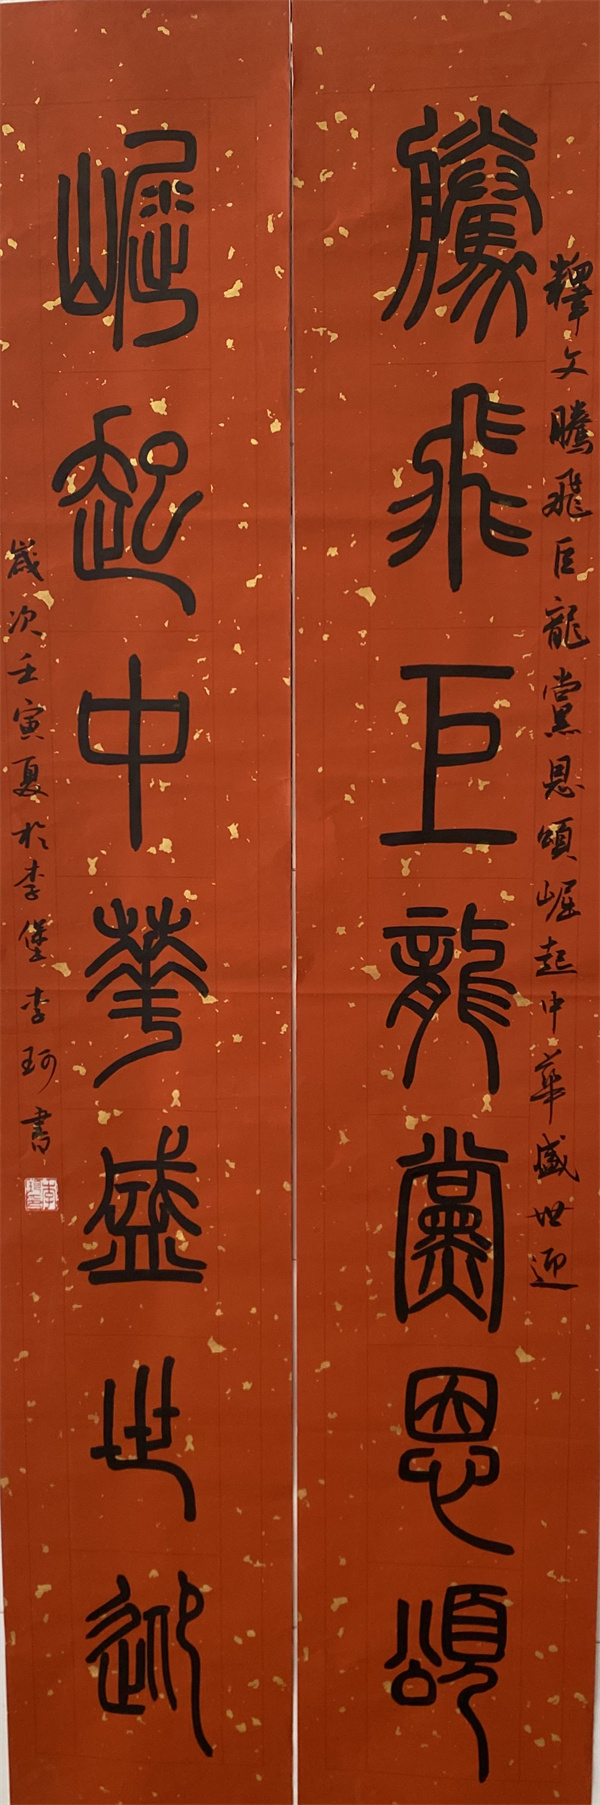 騰飛巨龍黨恩頌
釋文騰飛巨龍黨恩頌崛起中華盛世迎
崛起中華盛世迎
歲次壬寅夏於李堡李珂書